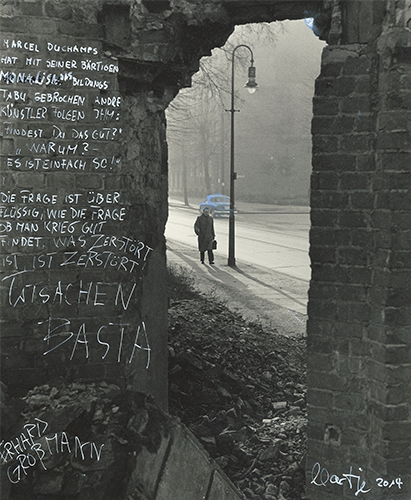 MARCEL DUCHAMPS
HAT MIT SEINER BÄRTIGEN
MONA LISA DAS BILDUNGS
TABU GEBROCHEN ANDRE
KÜNSTLER FOLGEN IHM:
"FINDEST DU DAS GUT?"
"WARUM?-
ES IST EINFACH SO!"
DIE FRAGE IST ÜBER
FLÜSSIG, WIE DIE FRAGE
OB MAN KRIEG GUT
FINDET. WAS ZERSTÖRT
IST IST ZERSTÖRT
TATSACHEN
BASTA
ERHARD
GROßMANN
2014